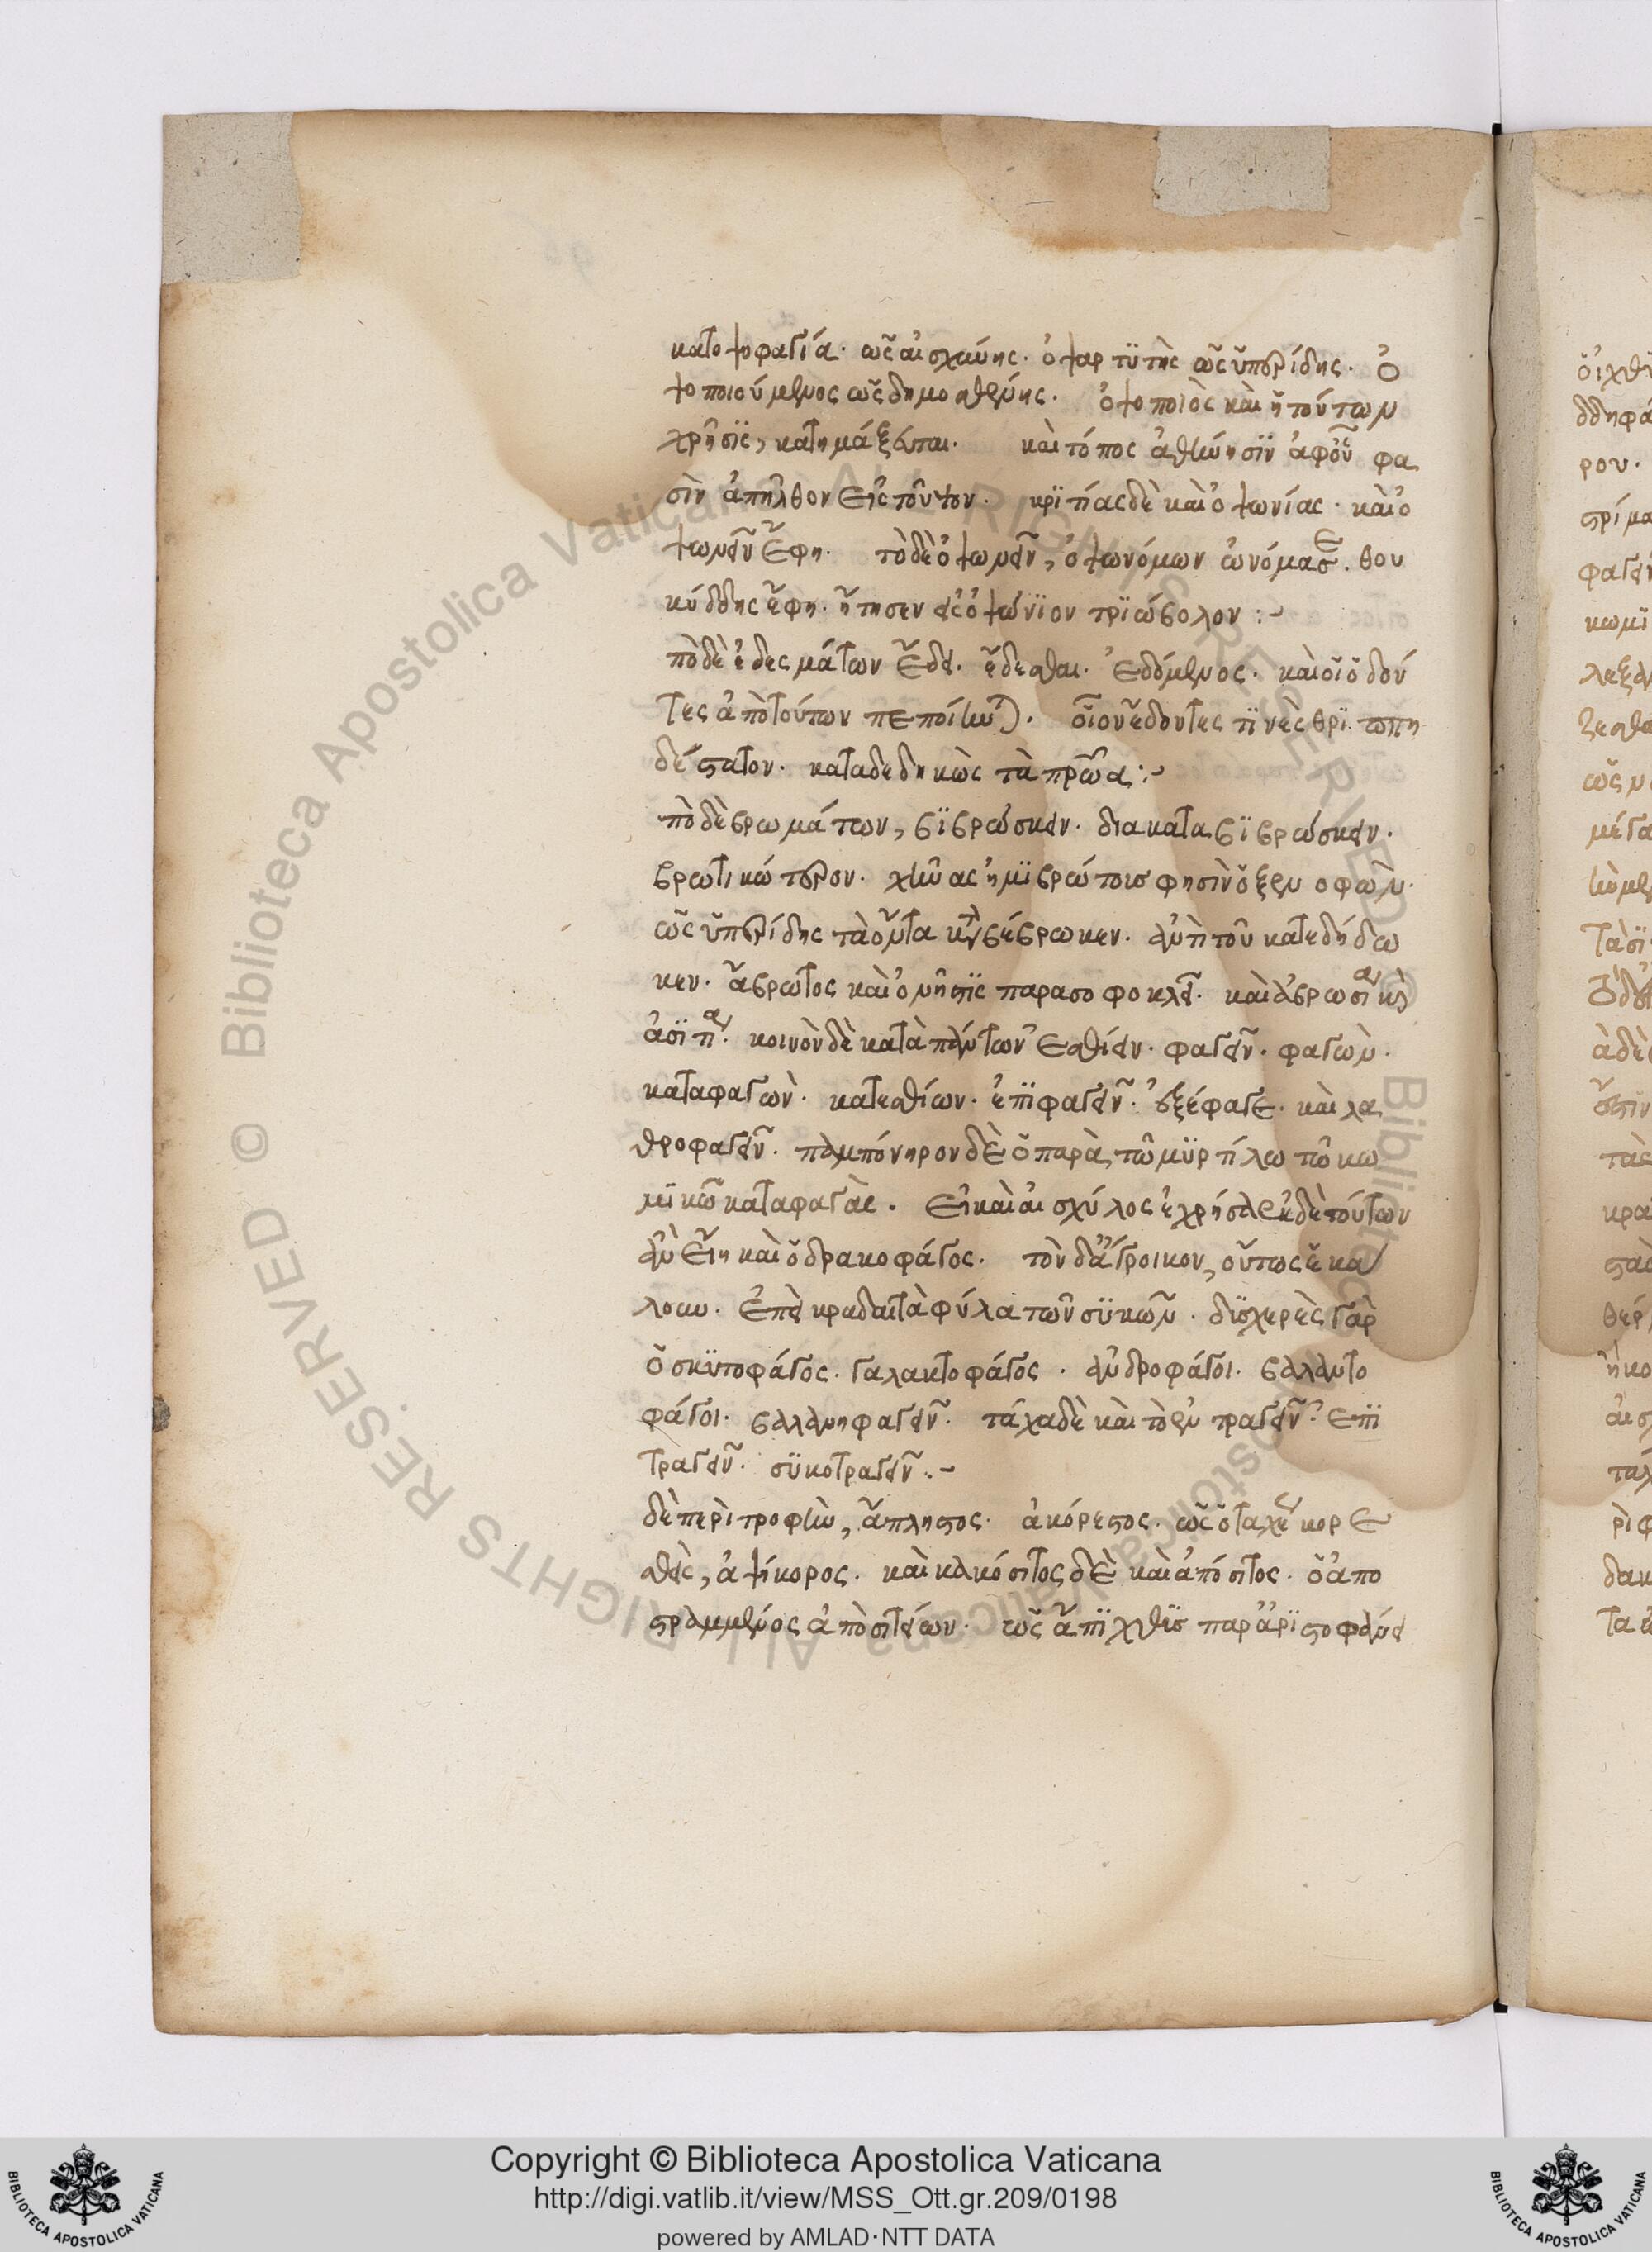 κατοψοφαγία. ὡς αἰσχίνης. ὀψαρτϋτὴς ὡς ὑπερίδης. ὀ
ψοποιούμενος ὡς δημοσθένης. ὀψοποιὸς καὶ ἡ τούτων
χρῆσϊς, κατημάξευται. καὶ τόπος ἀθήνησϊν ἀφ οὗ φα
σὶν ἀπῆλθον εἰς τοὖψον. κρϊτίας δὲ καὶ ὀψωνίας. καὶ ὀ
ψωνεῖν ἔφη. τὸ δὲ ὀψωνεῖν, ὀψωνόμων ὠνόμασε. θου
κύδδης ἔφη. ἤτησεν εἰς ὀψώνϊον τρϊώβολον :~
πὸ δὲ ἐδεσμάτων ἔδει. ἔδεσθαι. ἐδόμενος. καὶ οἱ ὀδόν
τες ἀπὸ τούτων πεποίηνται. οἷον ἔδοντες τϊνὲς θρϊ. τωπη
δέστατον. καταδεδηκὼς τὰ πρῶα :~
πὸ δὲ βρωμάτων, βϊβρώσκειν. διακαταβϊβρώσκειν.
βρωτικώτερον. χῆνας ἡμϊβρώτους φησὶν ὁ ξενοφῶν.
ὡς ὑπερίδης τὰ ὄντα καταβέβρωκεν. ἀντὶ τοῦ κατεδήδω
κεν. ἄβρωτος καὶ ὁ νῆστϊς παρα σοφοκλεῖ. καὶ ἀβρωσία καὶ
ἀσϊτία. κοινὸν δὲ κατὰ πάντων ἐσθίειν. φαγεῖν. φαγὼν.
καταφαγὼν. κατεσθίων. ἐπϊφαγεῖν. ἐξέφαγε. καὶ λα
θροφαγεῖν. παμπόνηρον δὲ ὁ παρὰ τῶ μϋρτίλω τῶ κω
μϊκῶ καταφαγὰς. εἰ καὶ αἰσχύλος ἐχρήσατο ἐκ δὲ τούτων
ἂν εἴη καὶ ὁ δρακοφάγος. τὸν δ ἄγροικον, οὕτως ἐκά
λουν. ἐπεὶ κραδαιτὰ φύλα τῶν σϋκῶν. δϋσχερὲς γὰρ
ὁ σκϋτοφάγος. γαλακτοφάγος. ἀνδροφάγοι. βαλαντο
φάγοι. βαλανηφαγεῖν. τάχα δὲ καὶ τὸ ἐν τραγεῖν. ἐπϊ
τραγεῖν. σϋκοτραγεῖν :~
δὲ περὶ τροφὴν, ἄπληστος. ἀκόρεστος. ὡς ὁ ταχέως κορε
σθεὶς, ἁψίκορος. καὶ κακόσιτος δὲ καὶ ἀπόσιτος. ὁ ἀπο
στραμμένος ἀπὸ σιτείων. ὡς ἄπϊχθϋς παρ ἀρϊστοφάνει
Copyright © Biblioteca Apostolica Vaticana
http://digi.vatlib.it/view/MSS_Ott.gr.209/0198
powered by AMLAD·NTT DATA